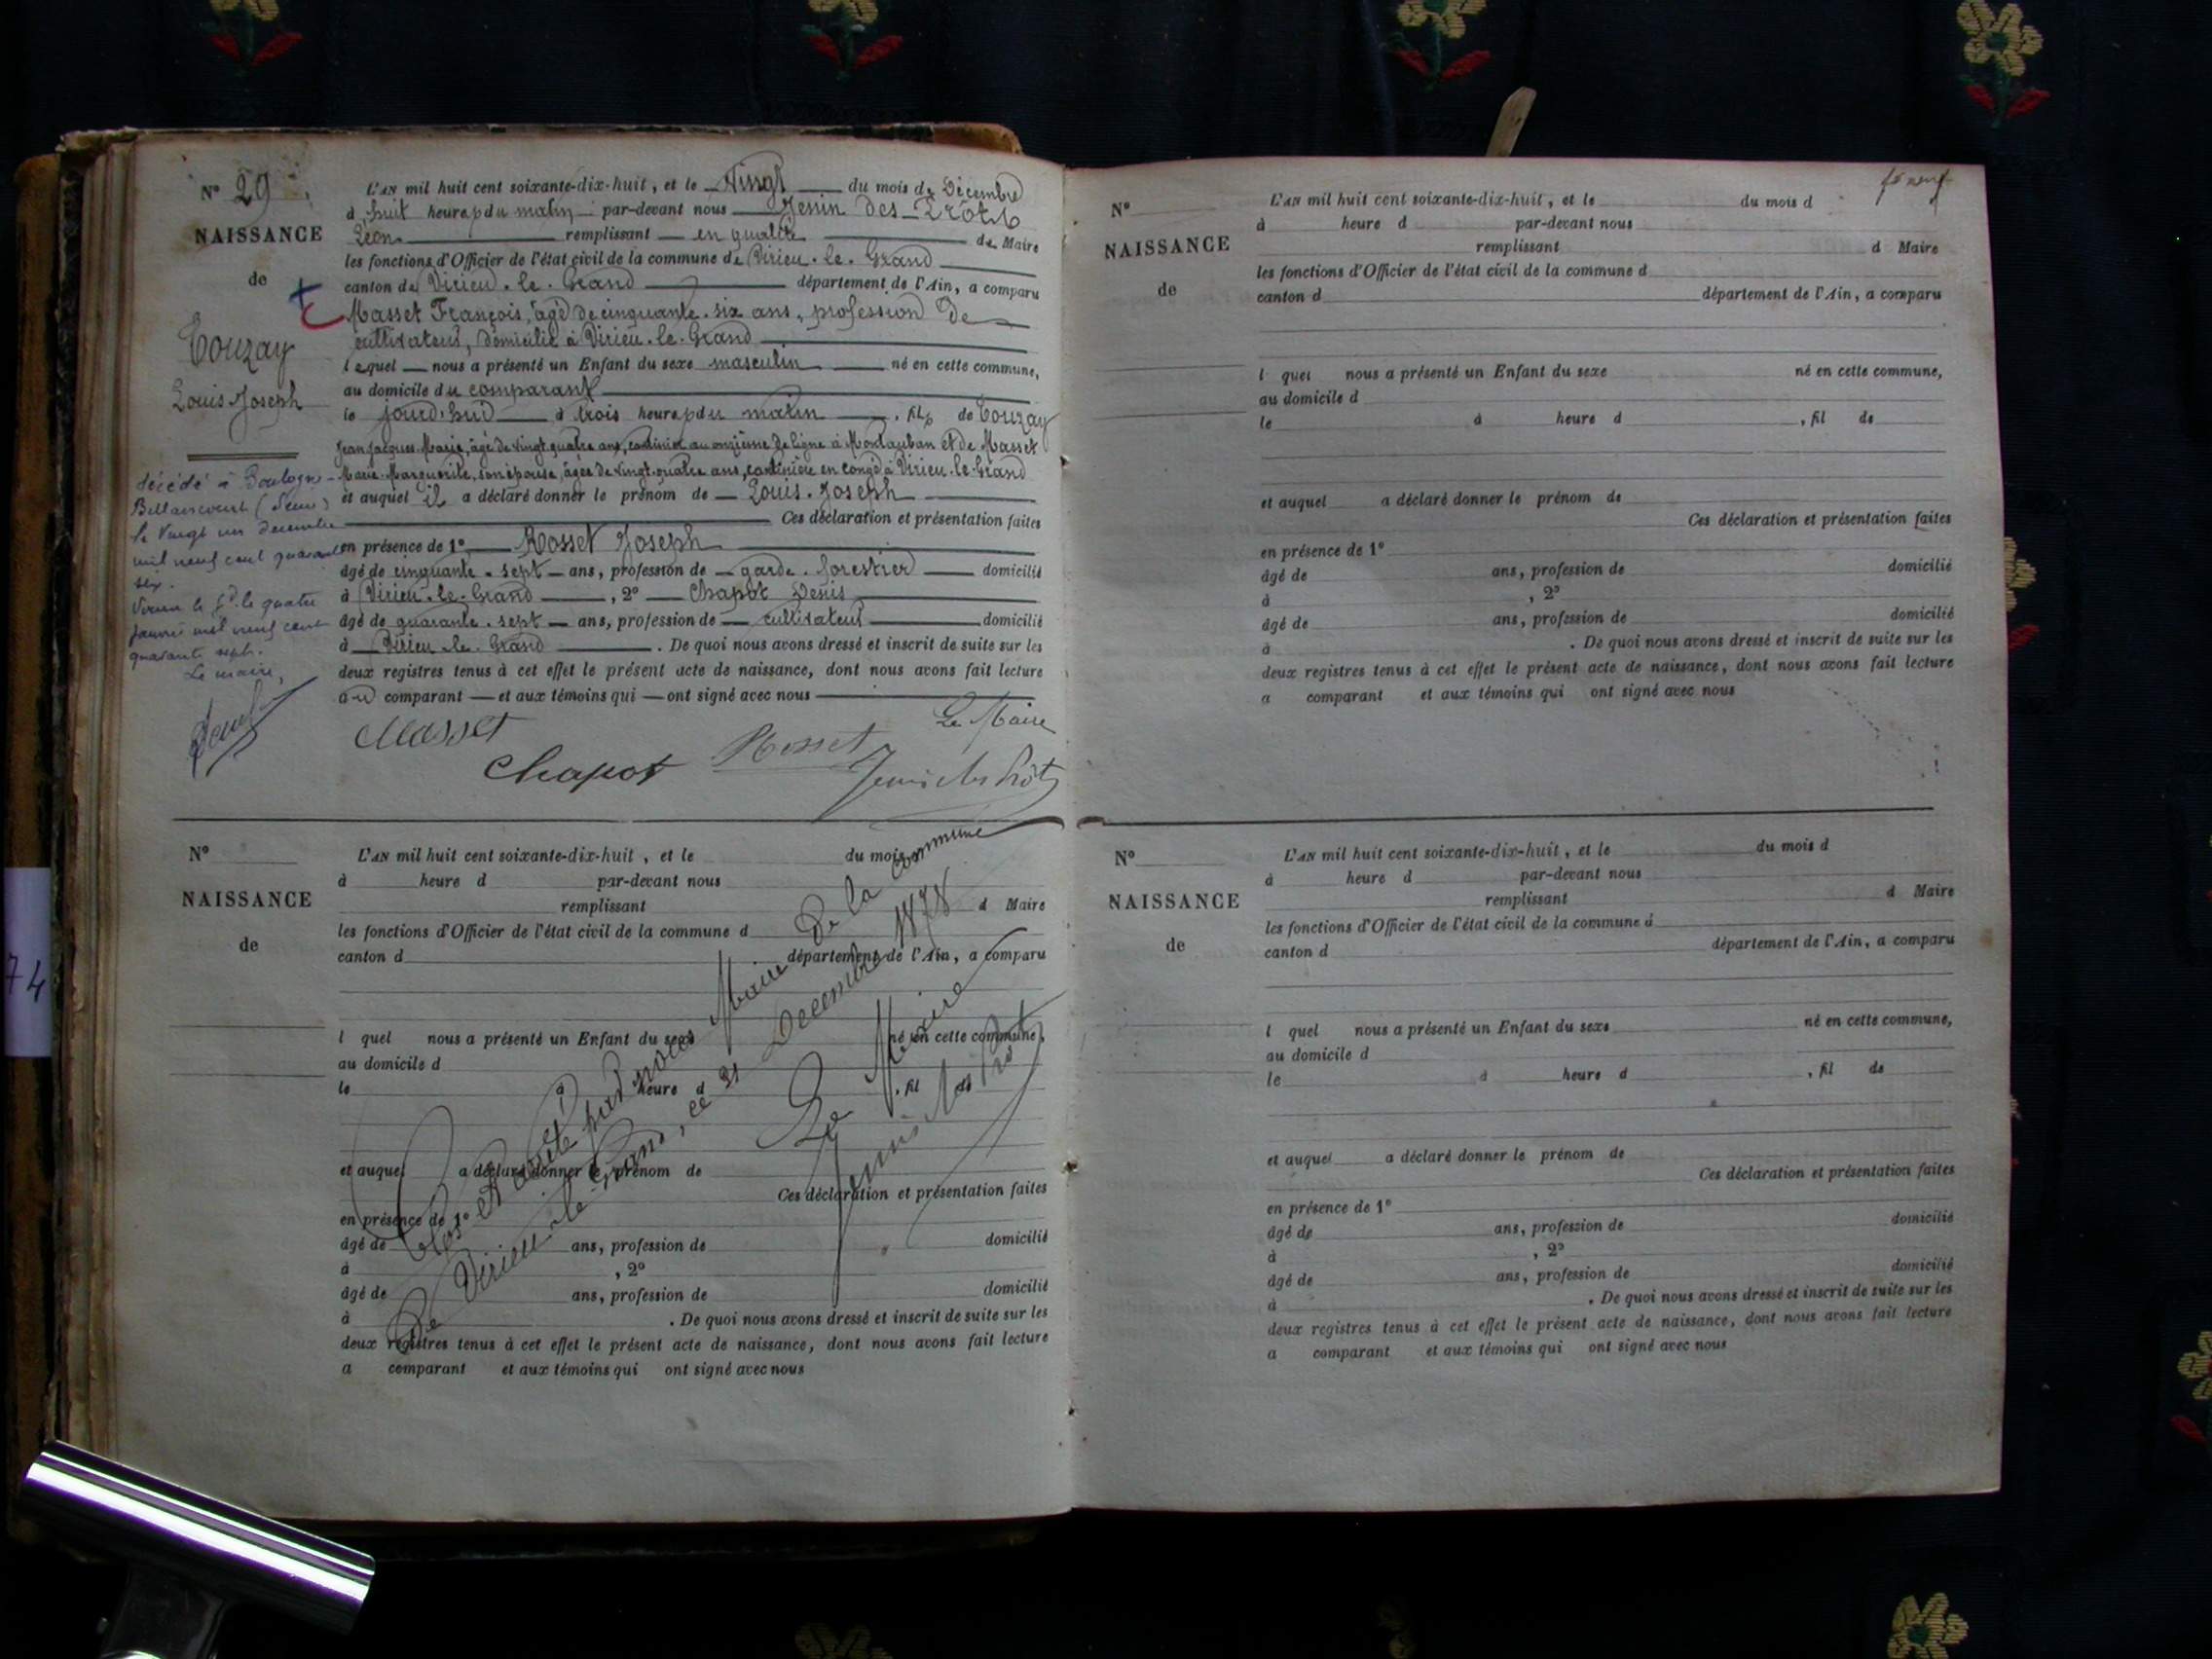 N° 29
NAISSANCE
de
Touzay
Louis Joseph
L'AN mil huit cent soixante-dix-huit, et le Vingt du mois de Décembre
à huit heures du matin par-devant nous Jenin des Prôts
Léon remplissant en qualité de Maire
les fonctions d'Officier de l'état civil de la commune de Virieu-le-Grand
canton de Virieu-le-Grand département de l'Ain, a comparu
Masset François, âgé de cinquante-six ans, profession de
cultivateur, domicilié à Virieu-le-Grand
lequel nous a présenté un Enfant du sexe masculin né en cette commune,
au domicile du comparant
le jourd'hui à trois heures du matin, fils de Touzay
Jean Jacques Marie, âgé de vingt-quatre ans, cantinier au onzième de ligne à Montauban et de Masset
Marie Marguerite, son épouse, âgée de vingt-quatre ans, cantinière en congé à Virieu-le-Grand
et auquel il a déclaré donner le prénom de Louis-Joseph
Ces déclaration et présentation faites
en présence de 1° Rosset Joseph
âgé de cinquante-sept ans, profession de garde-forestier domicilié
à Virieu-le-Grand, 2° Chapot Denis
âgé de quarante-sept ans, profession de cultivateur domicilié
à Virieu-le-Grand. De quoi nous avons dressé et inscrit de suite sur les
deux registres tenus à cet effet le présent acte de naissance, dont nous avons fait lecture
au comparant et aux témoins qui ont signé avec nous
décédé à Boulogne-
Billancourt (Seine)
le vingt un décembre
mil neuf cent quarante
six.
Virieu le Gd le quatre
janvier mil neuf cent
quarante sept.
Le maire,
Masset
Chapot
Rosset
Le Maire
Jenin des Prôts
N°
NAISSANCE
de
L'AN mil huit cent soixante-dix-huit, et le du mois
à heure d par-devant nous
remplissant d Maire
les fonctions d'Officier de l'état civil de la commune d
canton d département de l'Ain, a comparu
l quel nous a présenté un Enfant du sexe né en cette commune,
au domicile d
le à heure d , fil de
et auquel a déclaré donner le prénom de
Ces déclaration et présentation faites
en présence de 1°
âgé de ans, profession de domicilié
à , 2°
âgé de ans, profession de domicilié
à . De quoi nous avons dressé et inscrit de suite sur les
deux registres tenus à cet effet le présent acte de naissance, dont nous avons fait lecture
a comparant et aux témoins qui ont signé avec nous
Clos et arrêté par nous Maire de la commune
de Virieu-le-Grand, ce 31 Décembre 1878
Le Maire
Jenin des Prôts
74
N°
NAISSANCE
de
L'AN mil huit cent soixante-dix-huit, et le du mois d
à heure d par-devant nous
remplissant d Maire
les fonctions d'Officier de l'état civil de la commune d
canton d département de l'Ain, a comparu
l quel nous a présenté un Enfant du sexe né en cette commune,
au domicile d
le à heure d , fil de
et auquel a déclaré donner le prénom de
Ces déclaration et présentation faites
en présence de 1°
âgé de ans, profession de domicilié
à , 2°
âgé de ans, profession de domicilié
à . De quoi nous avons dressé et inscrit de suite sur les
deux registres tenus à cet effet le présent acte de naissance, dont nous avons fait lecture
a comparant et aux témoins qui ont signé avec nous
N°
NAISSANCE
de
L'AN mil huit cent soixante-dix-huit, et le du mois d
à heure d par-devant nous
remplissant d Maire
les fonctions d'Officier de l'état civil de la commune d
canton d département de l'Ain, a comparu
l quel nous a présenté un Enfant du sexe né en cette commune,
au domicile d
le à heure d , fil de
et auquel a déclaré donner le prénom de
Ces déclaration et présentation faites
en présence de 1°
âgé de ans, profession de domicilié
à , 2°
âgé de ans, profession de domicilié
à . De quoi nous avons dressé et inscrit de suite sur les
deux registres tenus à cet effet le présent acte de naissance, dont nous avons fait lecture
a comparant et aux témoins qui ont signé avec nous